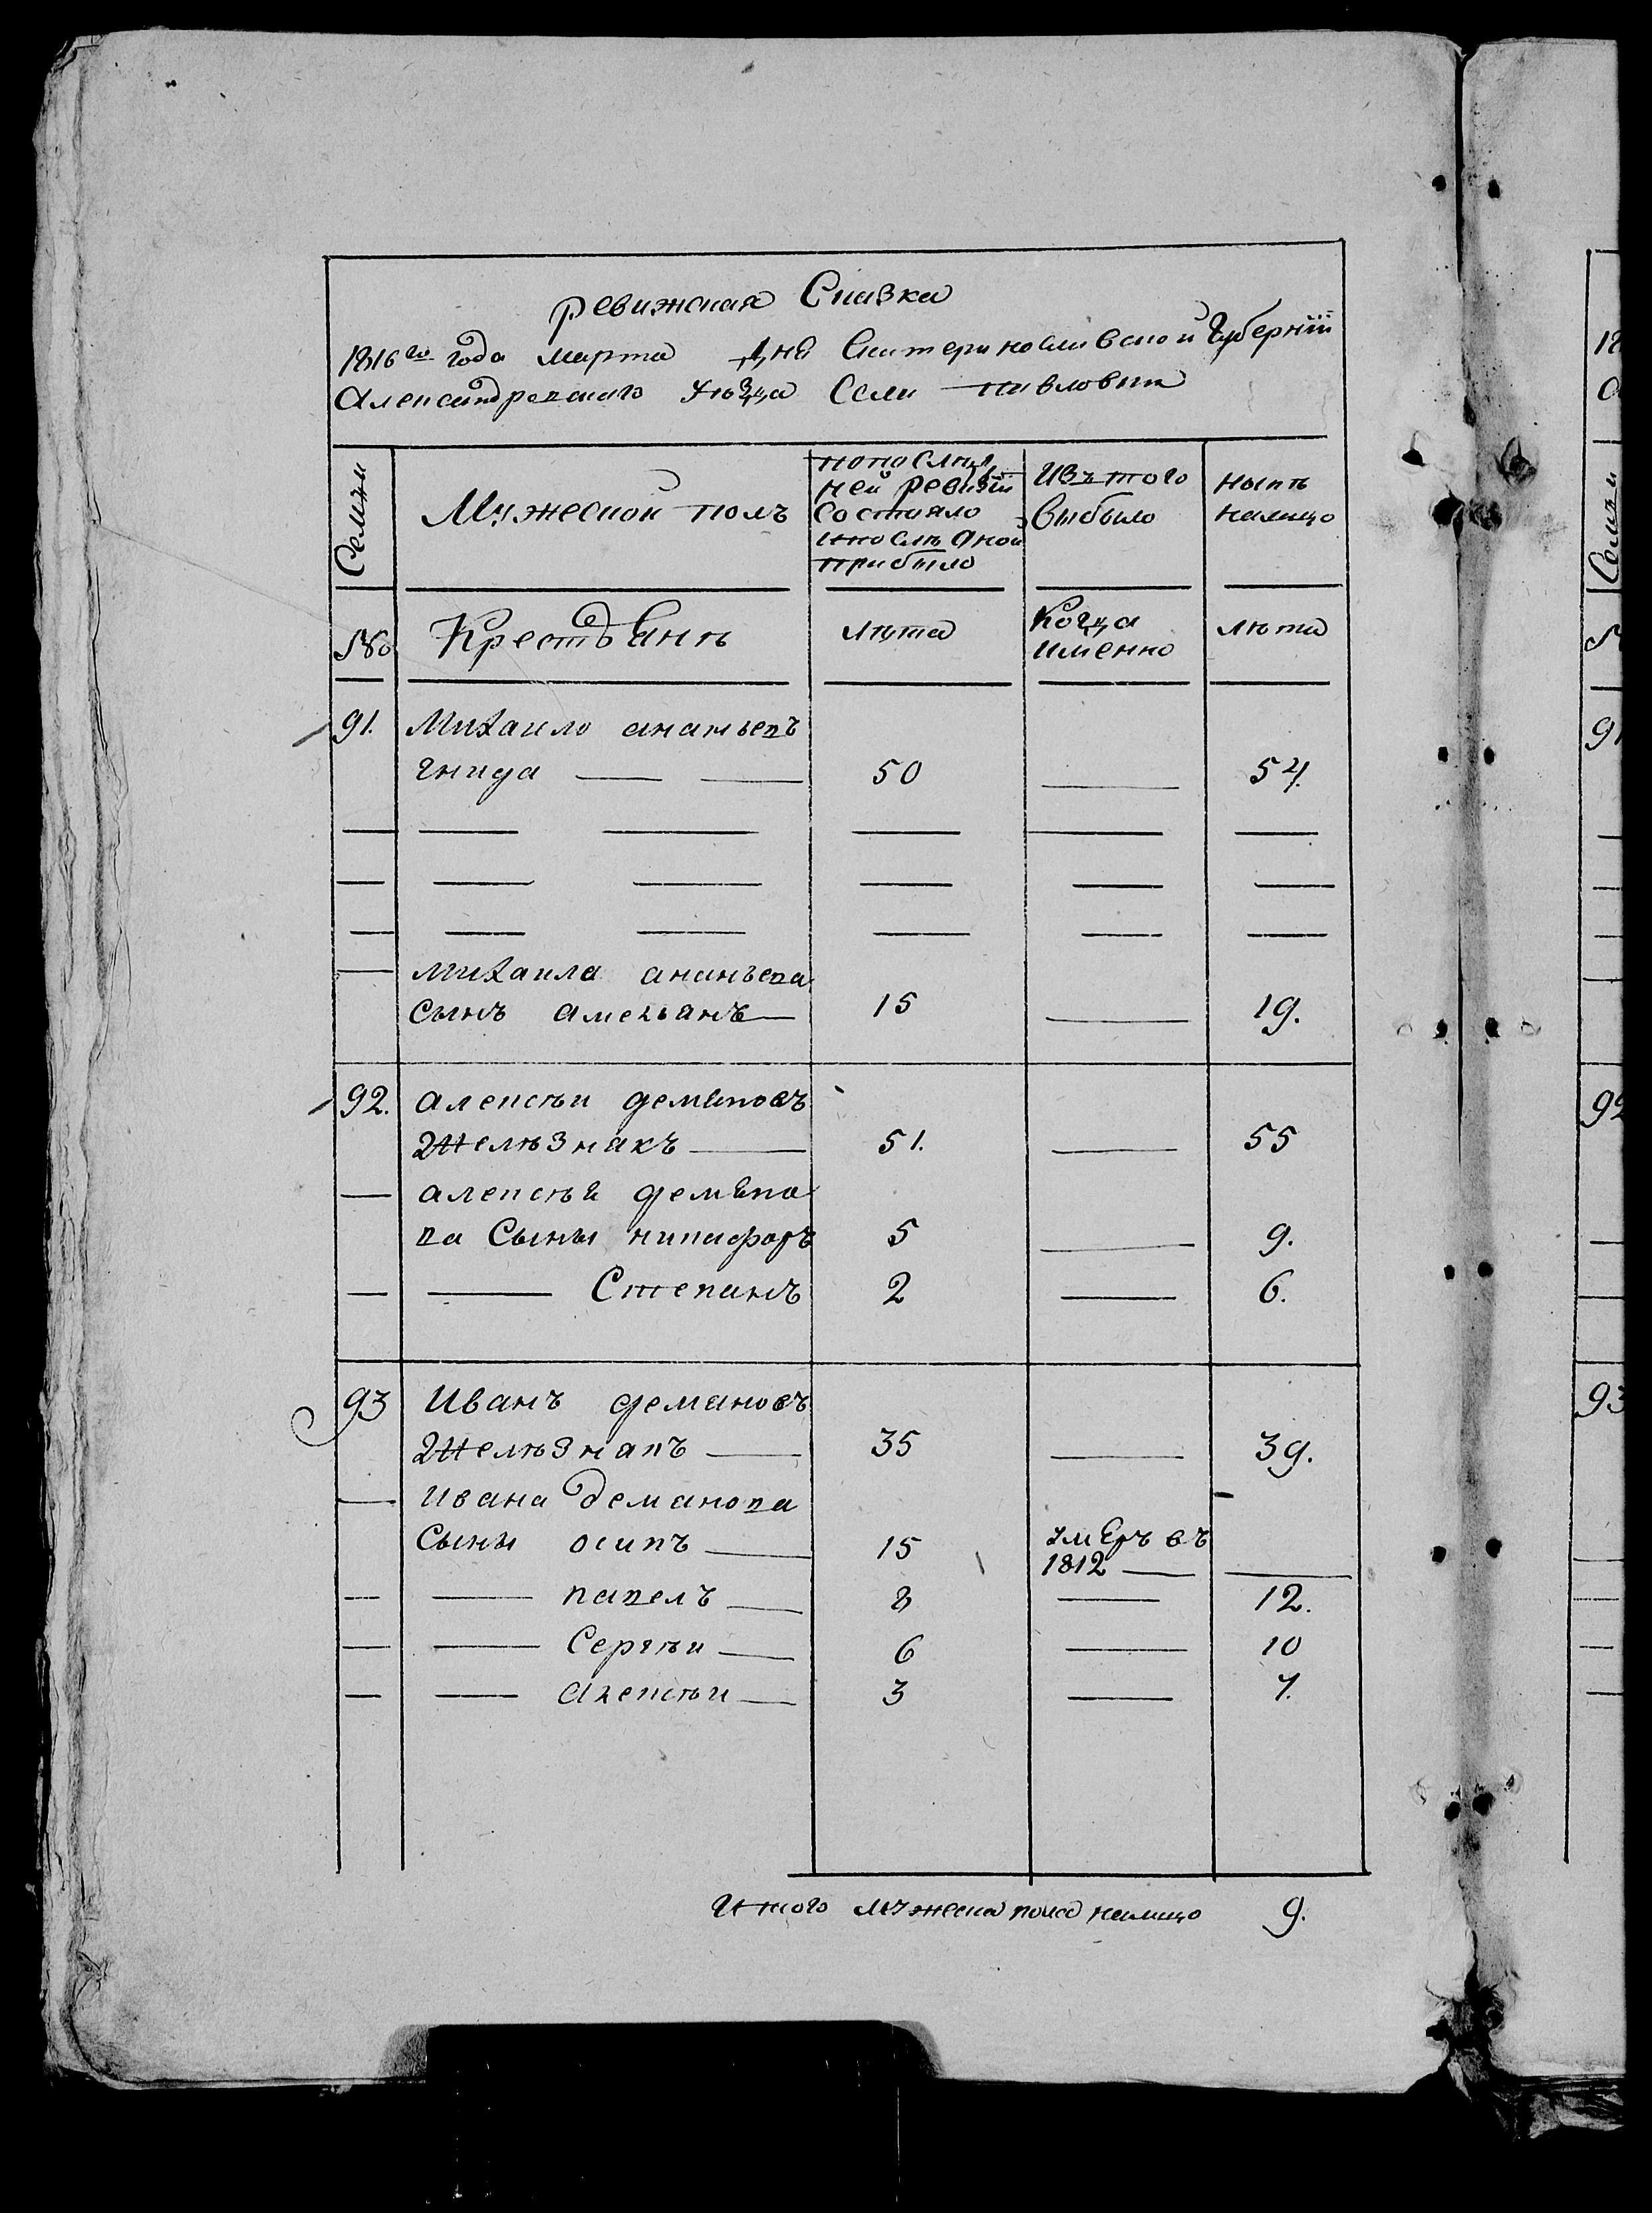 ревижская Сказка
1816го года марта дня Екатеринославской Губерніи
Александрескаго уѣзда Села павловки
Семьи
Мужеской полъ
попослѣд
ней ревизіи
состояло
ипослѣ оной
прибыло
Изъ того
выбыло
нынѣ
налицо
№
Крестьянѣ
лѣта
Когда
именно
лѣта
91. Михаило ананьевъ
гнида 50 54.
Михаила ананьева
сынъ амельянъ 15 19.
92. алексѣи демяновъ
Желѣзнякъ 51. 55
алексѣя демяно
ва Сыны никифоръ 5 9.
Степанъ 2 6.
93 Иванъ демяновъ
Желѣзнякъ 35 39.
Ивана демянова
Сыны осипъ 15 умеръ въ
1812
павелъ 8 12.
Сергѣи 6 10
Алексѣи 3 7.
Итого мужеска пола налицо 9.
18
Семьи
91
92
93